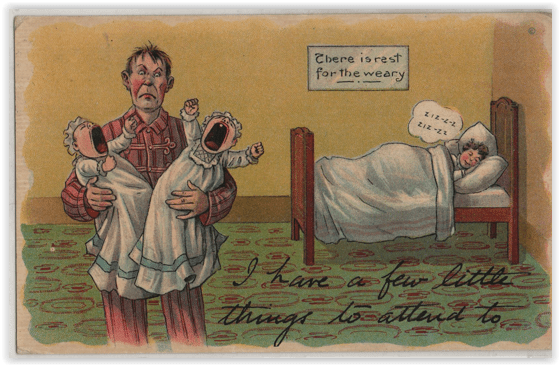 There is rest
for the weary
ZIZ-Z-Z
ZIZ-ZZ
I have a few little
things to attend to.